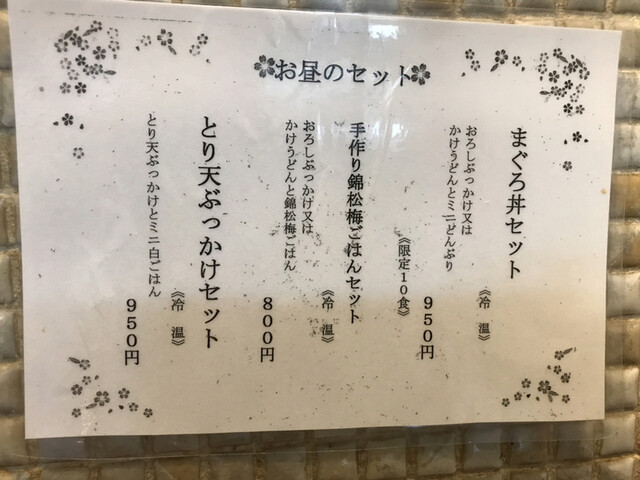 お昼のセット
まぐろ丼セット
《冷 温》
おろしぶっかけ又は
かけうどんとミニどんぶり
950円
《限定10食》
手作り錦松梅ごはんセット
《冷 温》
おろしぶっかけ又は
かけうどんと錦松梅ごはん
800円
とり天ぶっかけセット
《冷 温》
とり天ぶっかけとミニ白ごはん
950円